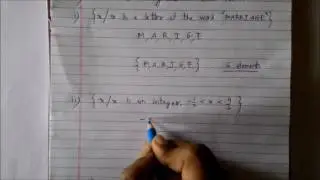 i) {x/x is a letter of the word "MARRIAGE"}
M, A, R, I, G, E
{M, A, R, I, G, E.} 6 elements
ii) {x/x is an integer, -1/2 < x < 9/2}